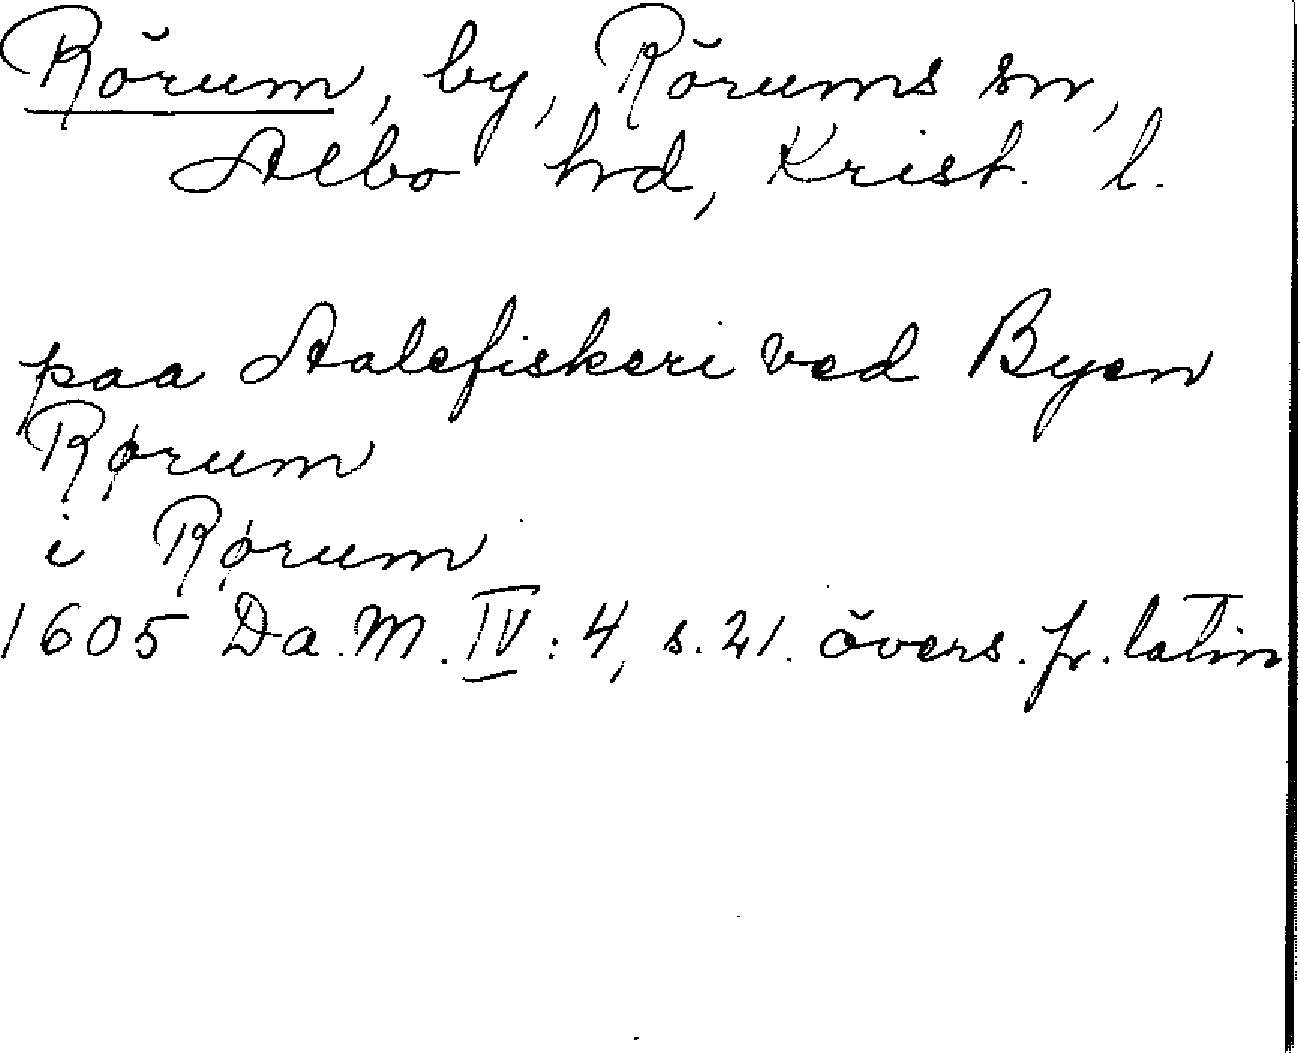 Rörum, by, Rörums sn,
Albo hd, Krist. l.
paa Aalefiskeri ved Byen
Rørum
i Rørum
1605 Da. M. IV: 4, s. 21. övers. fr. latin